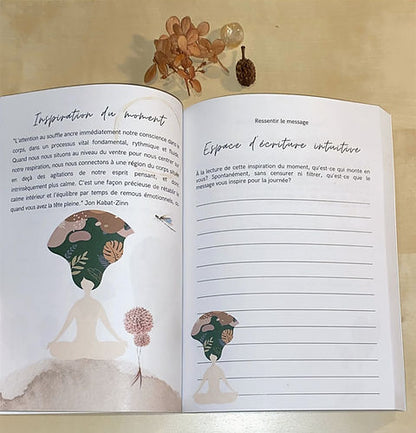 Inspiration du moment
"L'attention au souffle ancre immédiatement notre conscience dans le
corps, dans un processus vital fondamental, rythmique et flu
Quand nous nous situons au niveau du ventre pour nous centrer sur
notre respiration, nous nous connectons à une région du corps située
en deçà des agitations de notre esprit pensant, et donc
intrinsèquement plus calme. C'est une façon précieuse de rétablir le
calme intérieur et l'équilibre par temps de remous émotionnels, ou
quand vous avez la tête pleine." Jon Kabat-Zinn
Ressentir le message
Espace d'écriture intuitive
À la lecture de cette inspiration du moment, qu'est-ce qui monte en
vous? Spontanément, sans censurer ni filtrer, qu'est-ce que le
message vous inspire pour la journée?